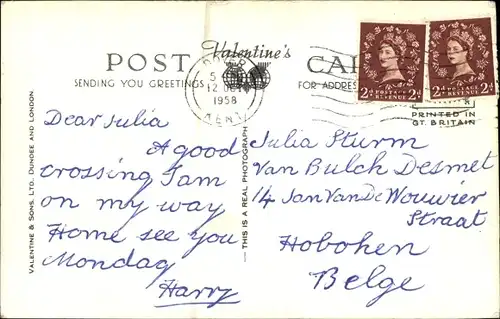 POST Valentine's CA
SENDING YOU GREETINGS FOR ADDRESS
5
12
1958
KENT
2d POSTAGE REVENUE 2d
2d POSTAGE REVENUE 2d
PRINTED IN
GT. BRITAIN
VALENTINE & SONS, LTD. DUNDEE AND LONDON
THIS IS A REAL PHOTOGRAPH
Dear Julia
A good
crossing I am
on my way
Home see you
Monday
Harry
Julia Sturm
Van Bulck Desmet
14 Jan Van De Wouwier
Straat
Hoboken
Belge